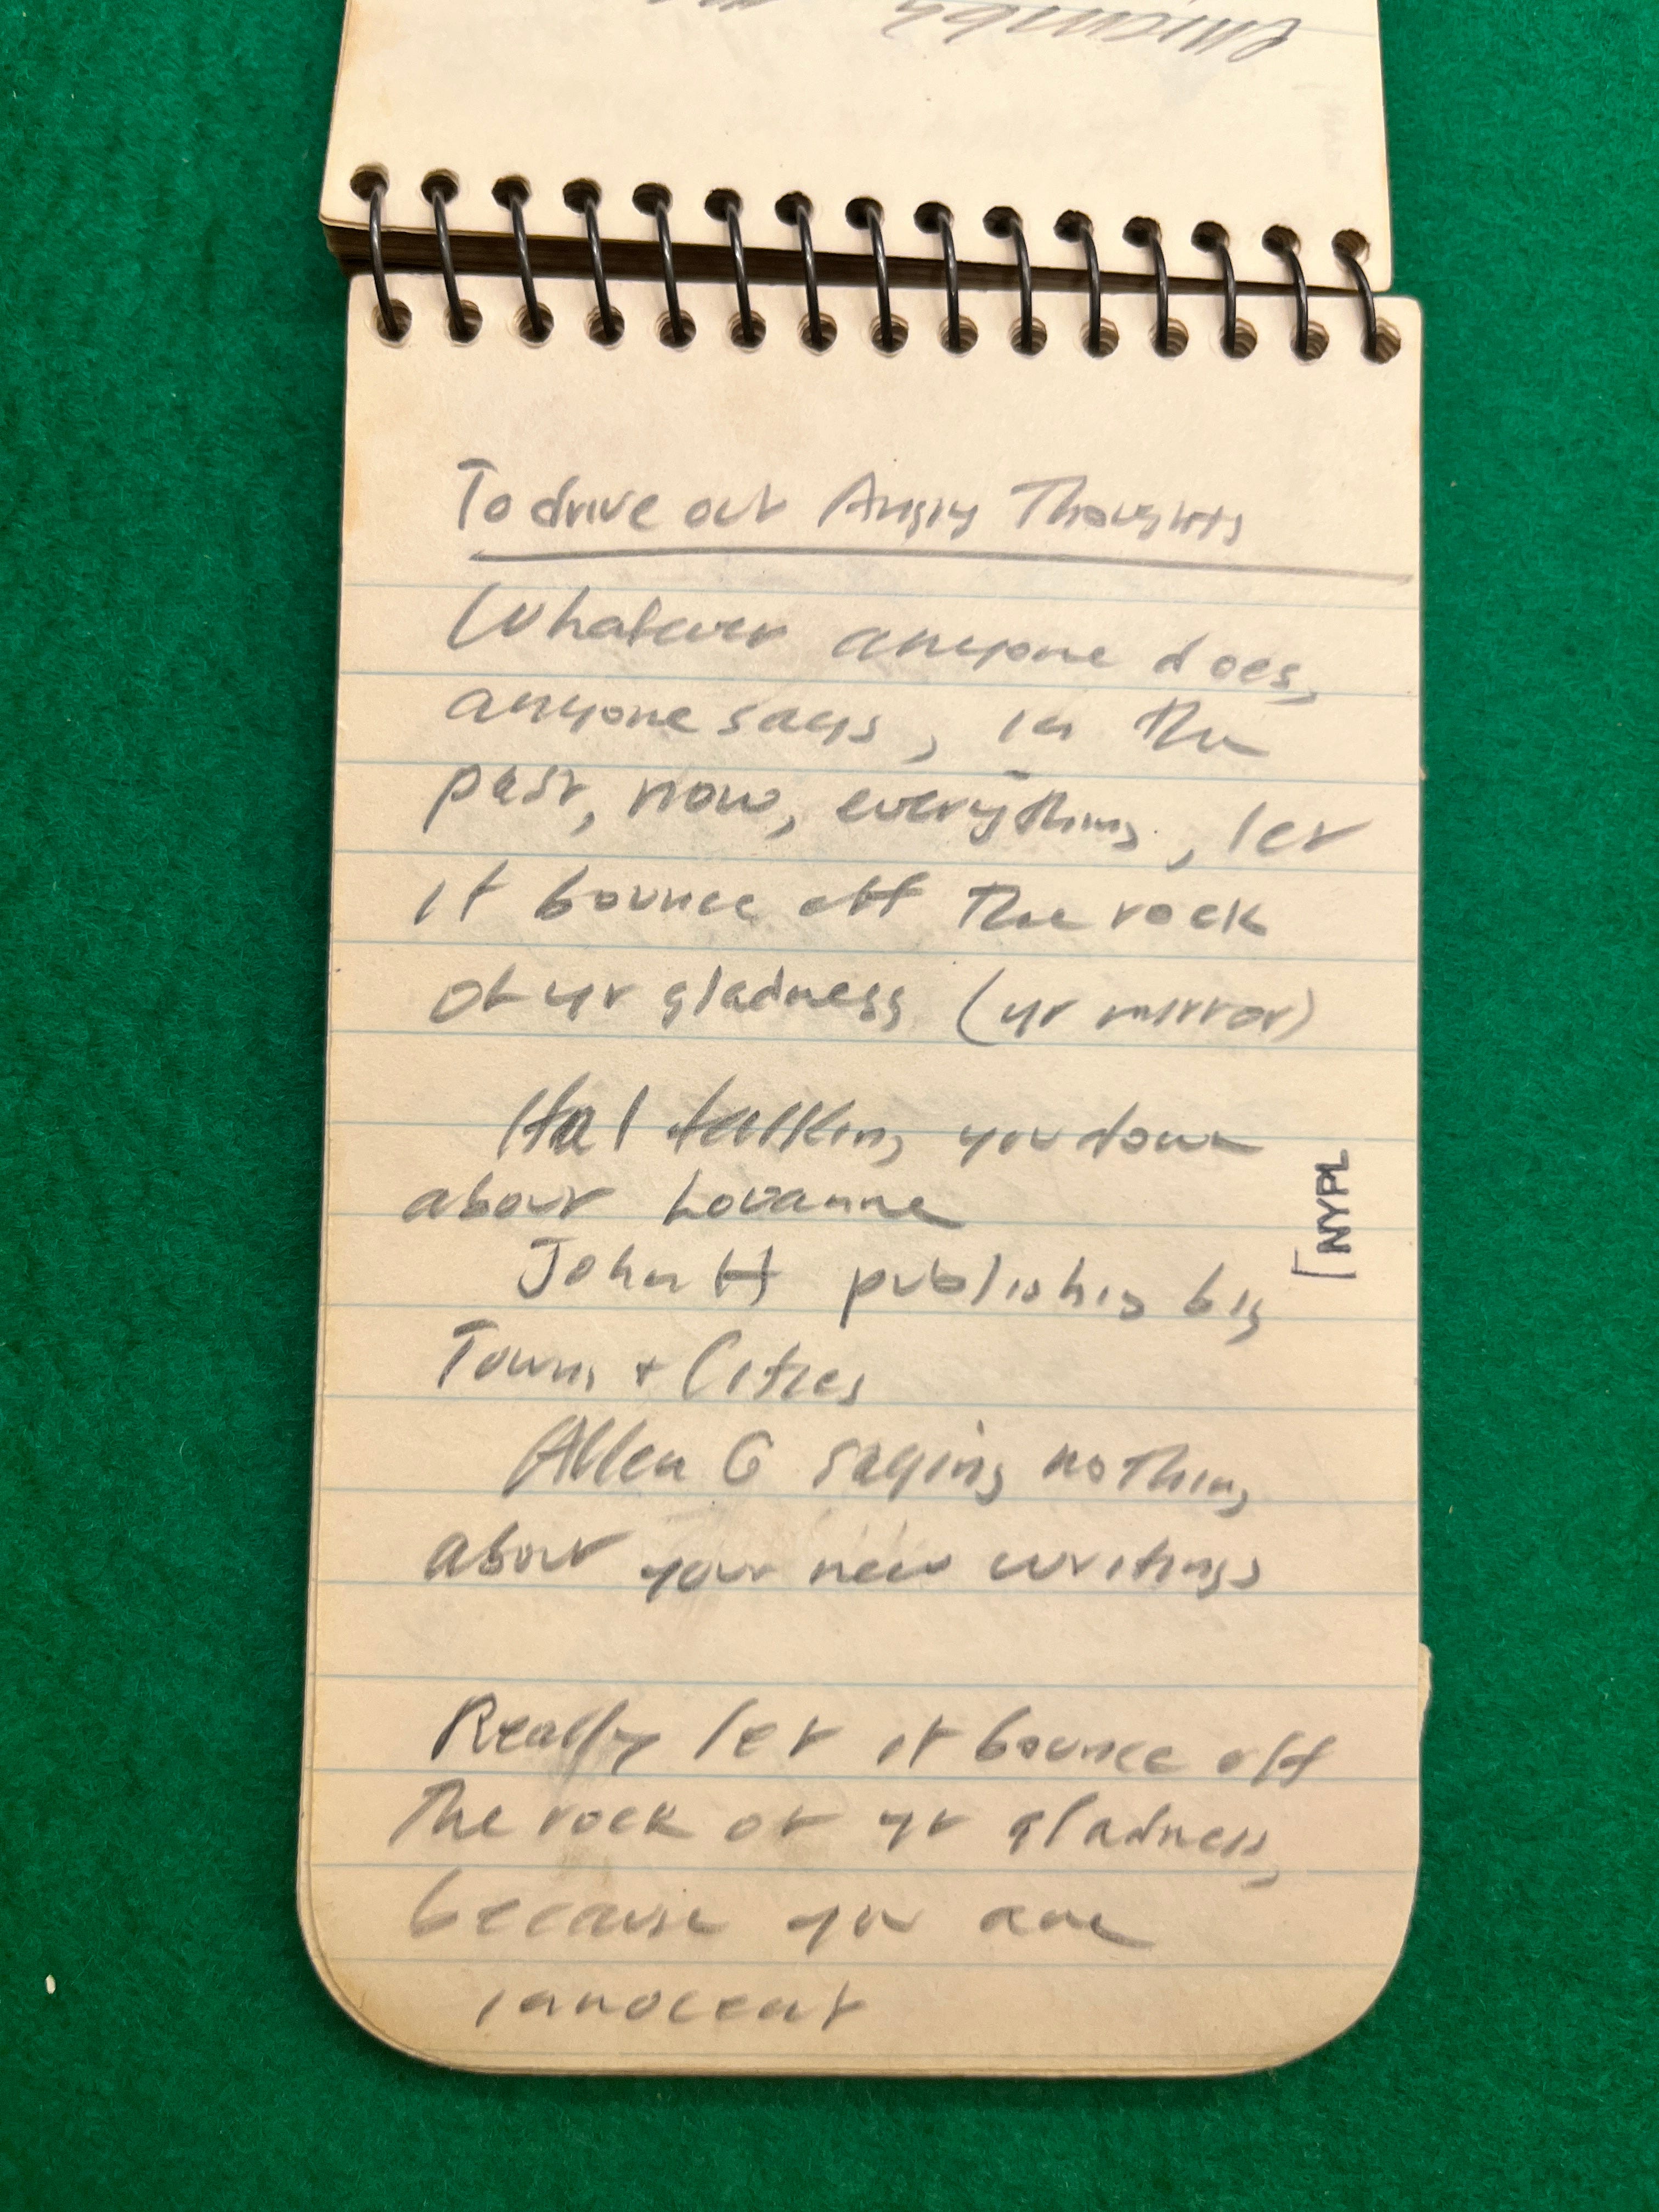 To drive out Angry Thoughts
Whatever anyone does,
anyone says, in the
past, now, everything, let
it bounce off the rock
of yr gladness (yr mirror)
Hal talking you down
about Lovanne
John H publishing big
Towns + Cities
Allen G saying nothing
about your new writings
Really let it bounce off
the rock of yr gladness,
because you are
innocent
[NYPL